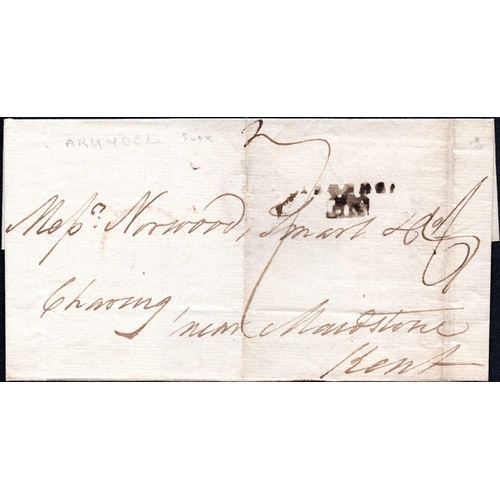 ARUNDEL
7
Messrs. Norwood, Smart & Co
Charing
near Maidstone
Kent